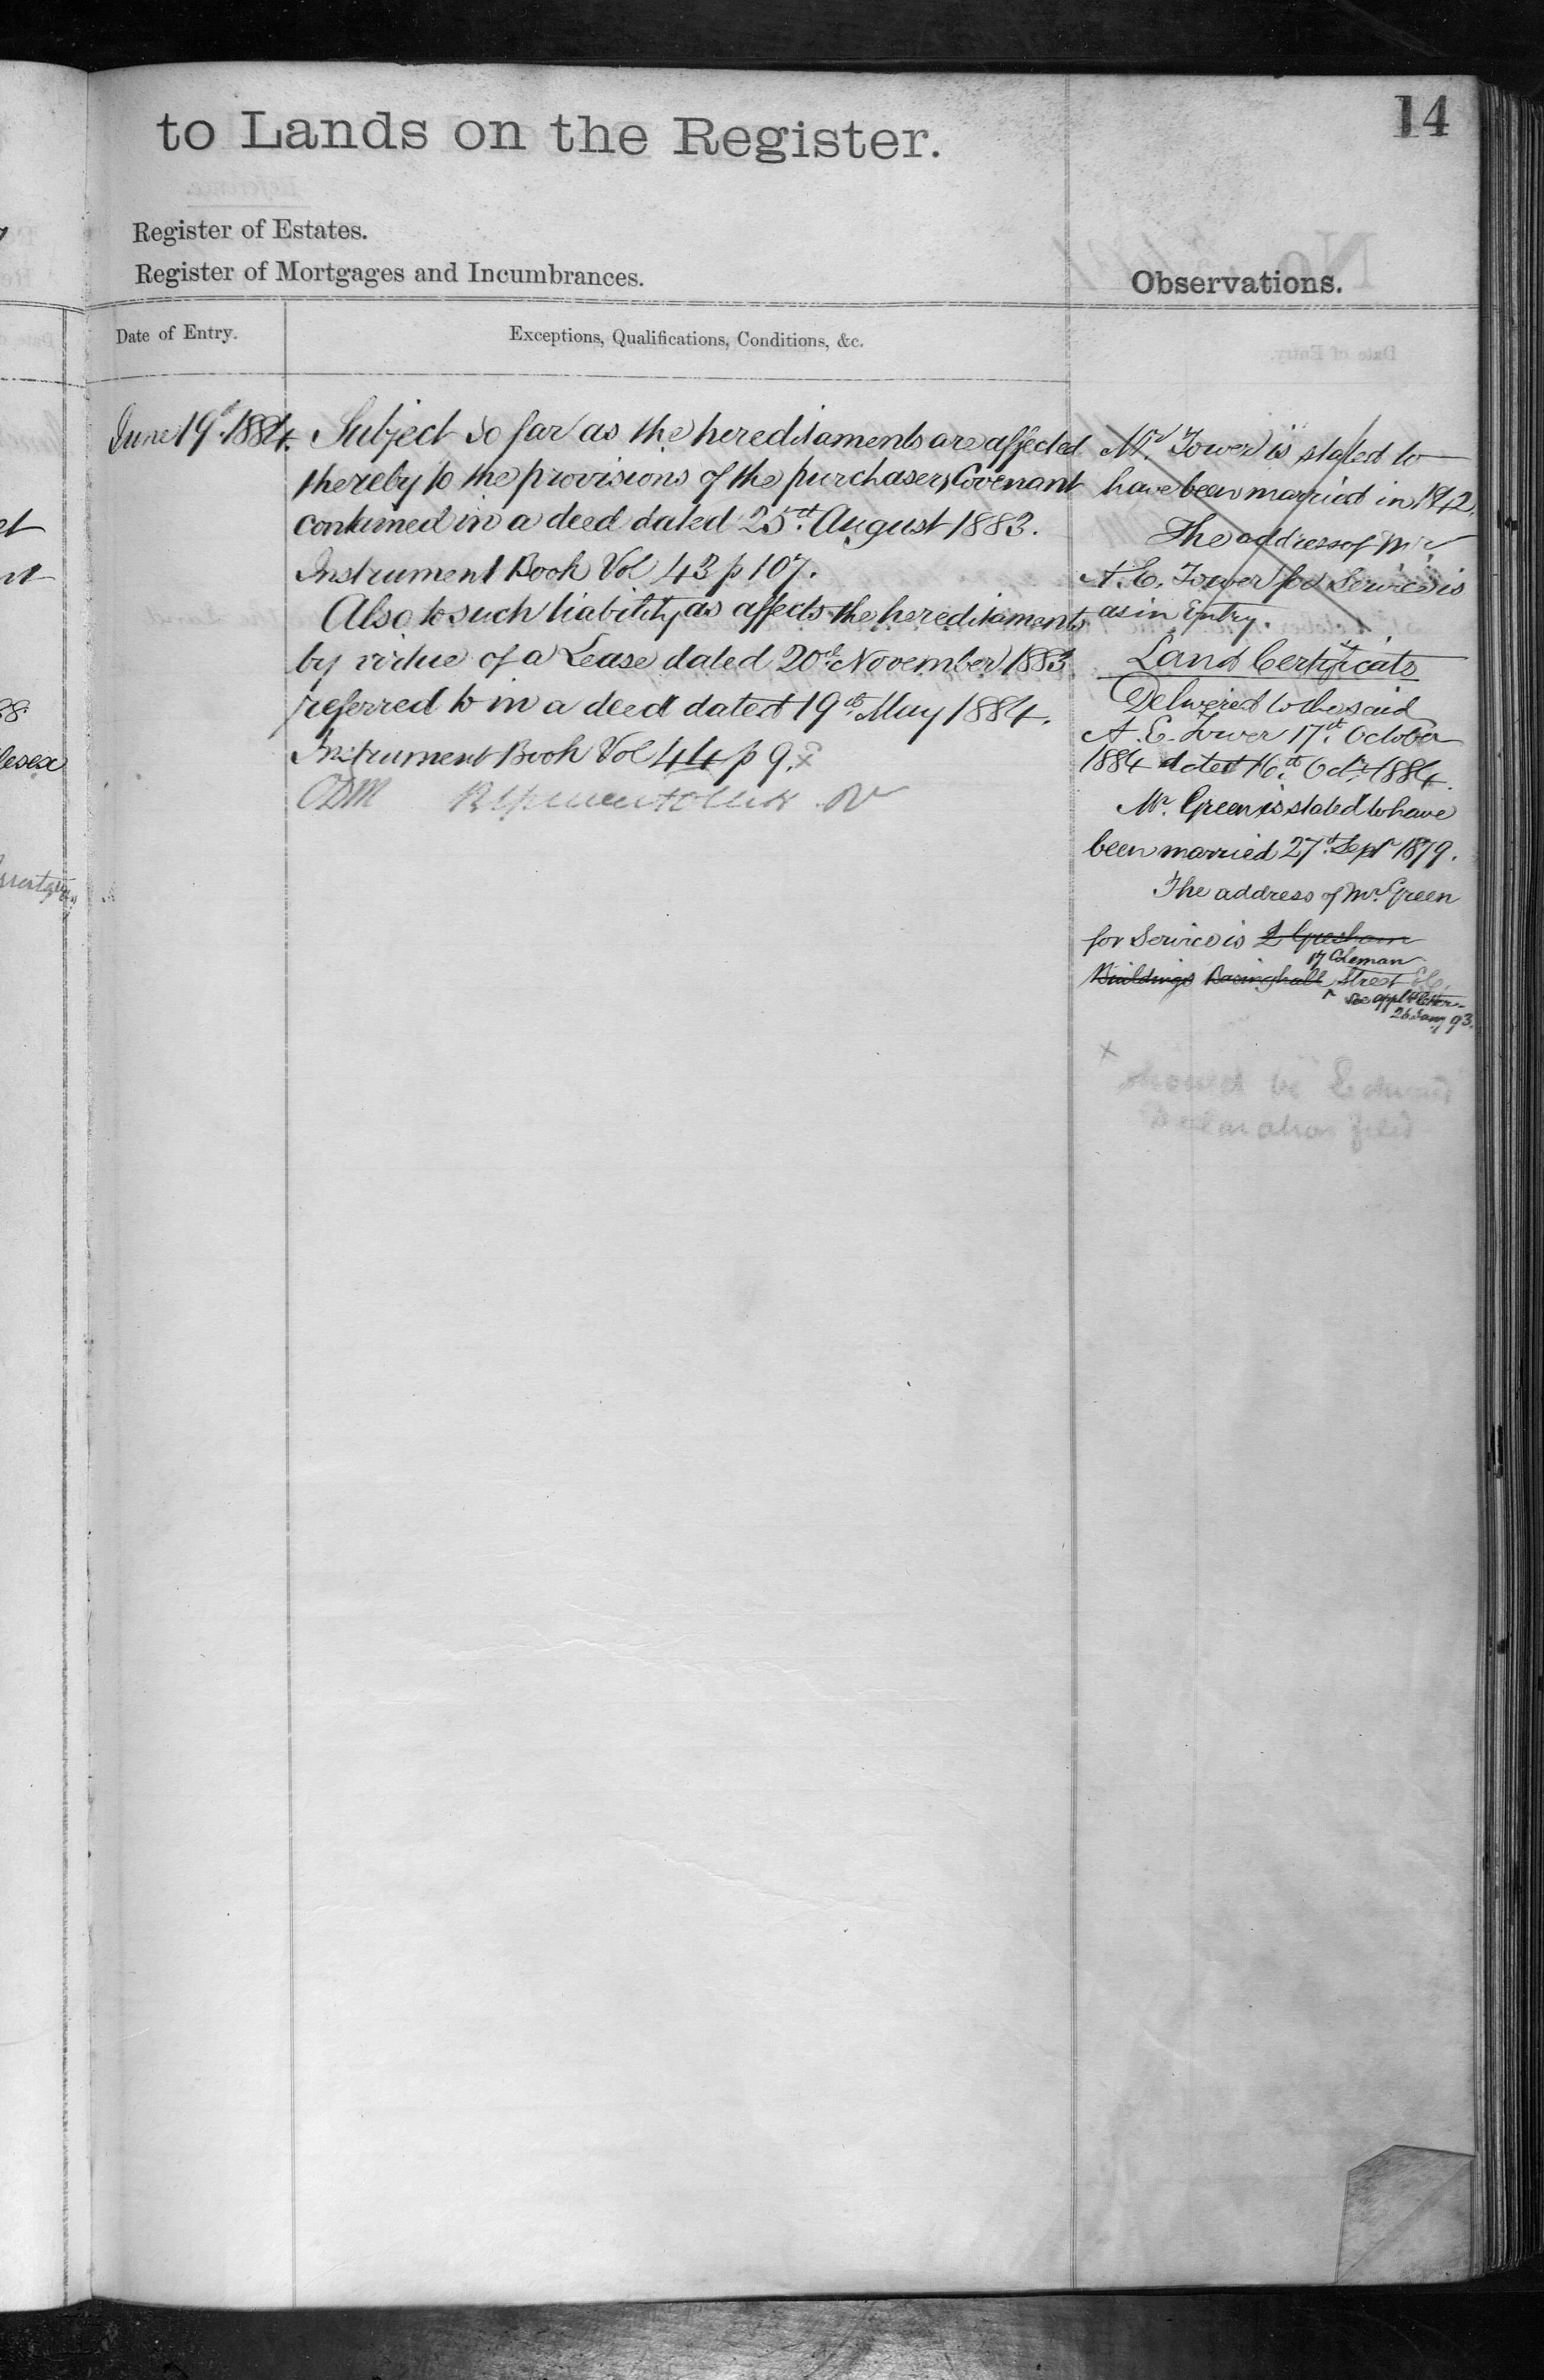 14
to Lands on the Register.
Register of Estates.
Register of Mortgages and Incumbrances.
Observations.
Date of Entry.
Exceptions, Qualifications, Conditions, &c.
June 19th 1884.
Subject so far as the hereditaments are affected
thereby to the provisions of the purchasers Covenant
contained in a deed dated 25th August 1883.
Instrument Book Vol 43 p 107.
Also to such liability as affects the hereditaments
by virtue of a Lease dated 20th November 1883
referred to in a deed dated 19th May 1884.
Instrument Book Vol 44 p 9. x
ODM
Mr Tower is stated to
have been married in 1842.
The address of Mr
A. E. Tower for Service is
as in Entry.
Land Certificate
Delivered to the said
A. E. Tower 17th October
1884 dated 16th Octr 1884.
Mr. Green is stated to have
been married 27th Sept 1879.
The address of Mr. Green
for Service is 2 Gresham
17 Coleman
Buildings Basinghall Street E.C.
See appl letter
26 Jany 93.
x
should be Edward
Declaration filed